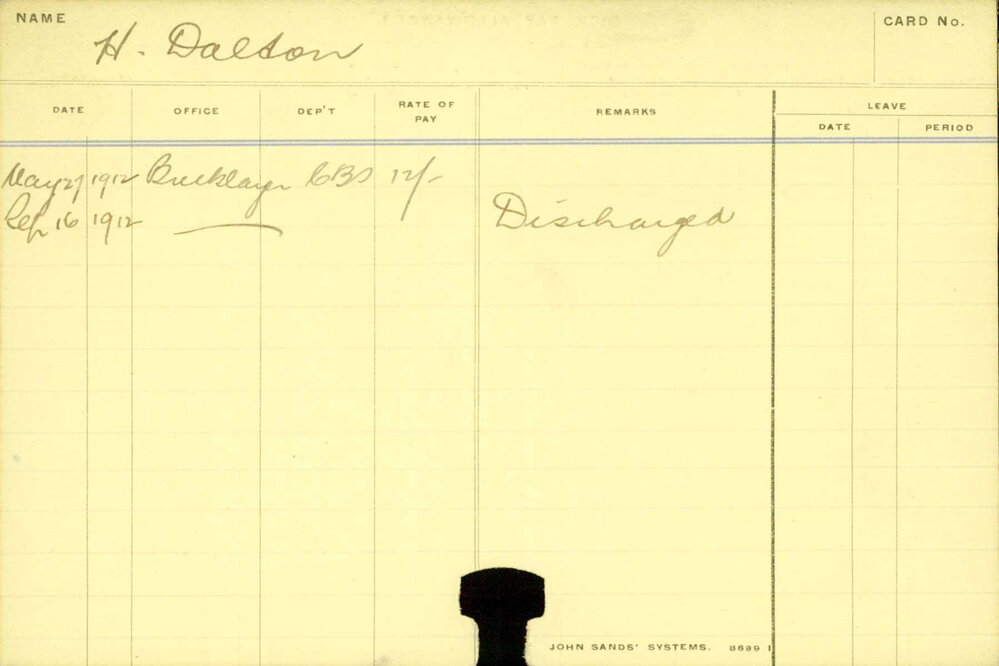 NAME H. Dalton CARD No.
DATE OFFICE DEP'T RATE OF PAY REMARKS LEAVE
DATE PERIOD
May 27 1912 Bricklayer CBS 12/-
Sep 16 1912 Discharged
JOHN SANDS' SYSTEMS. B689